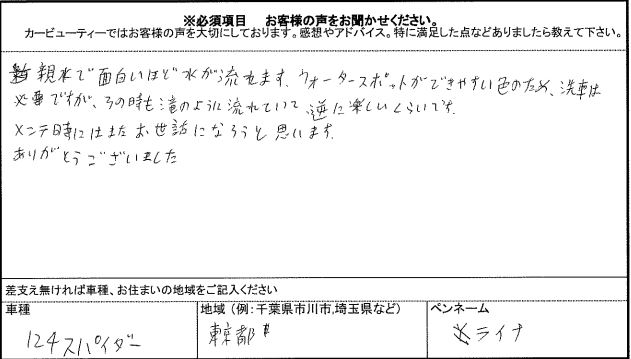 ※必須項目　お客様の声をお聞かせください。
カービューティーではお客様の声を大切にしております。感想やアドバイス。特に満足した点などありましたら教えて下さい。
親水で面白いほど水が流れます、ウォータースポットができやすい色のため、洗車は
必要ですが、その時も滝のように流れていて、逆に楽しいくらいです。
メンテ時にはまたお世話になろうと思います。
ありがとうございました
差支え無ければ車種、お住まいの地域をご記入ください
車種
地域（例：千葉県市川市,埼玉県など）
ペンネーム
124スパイダー
東京都
ライナ